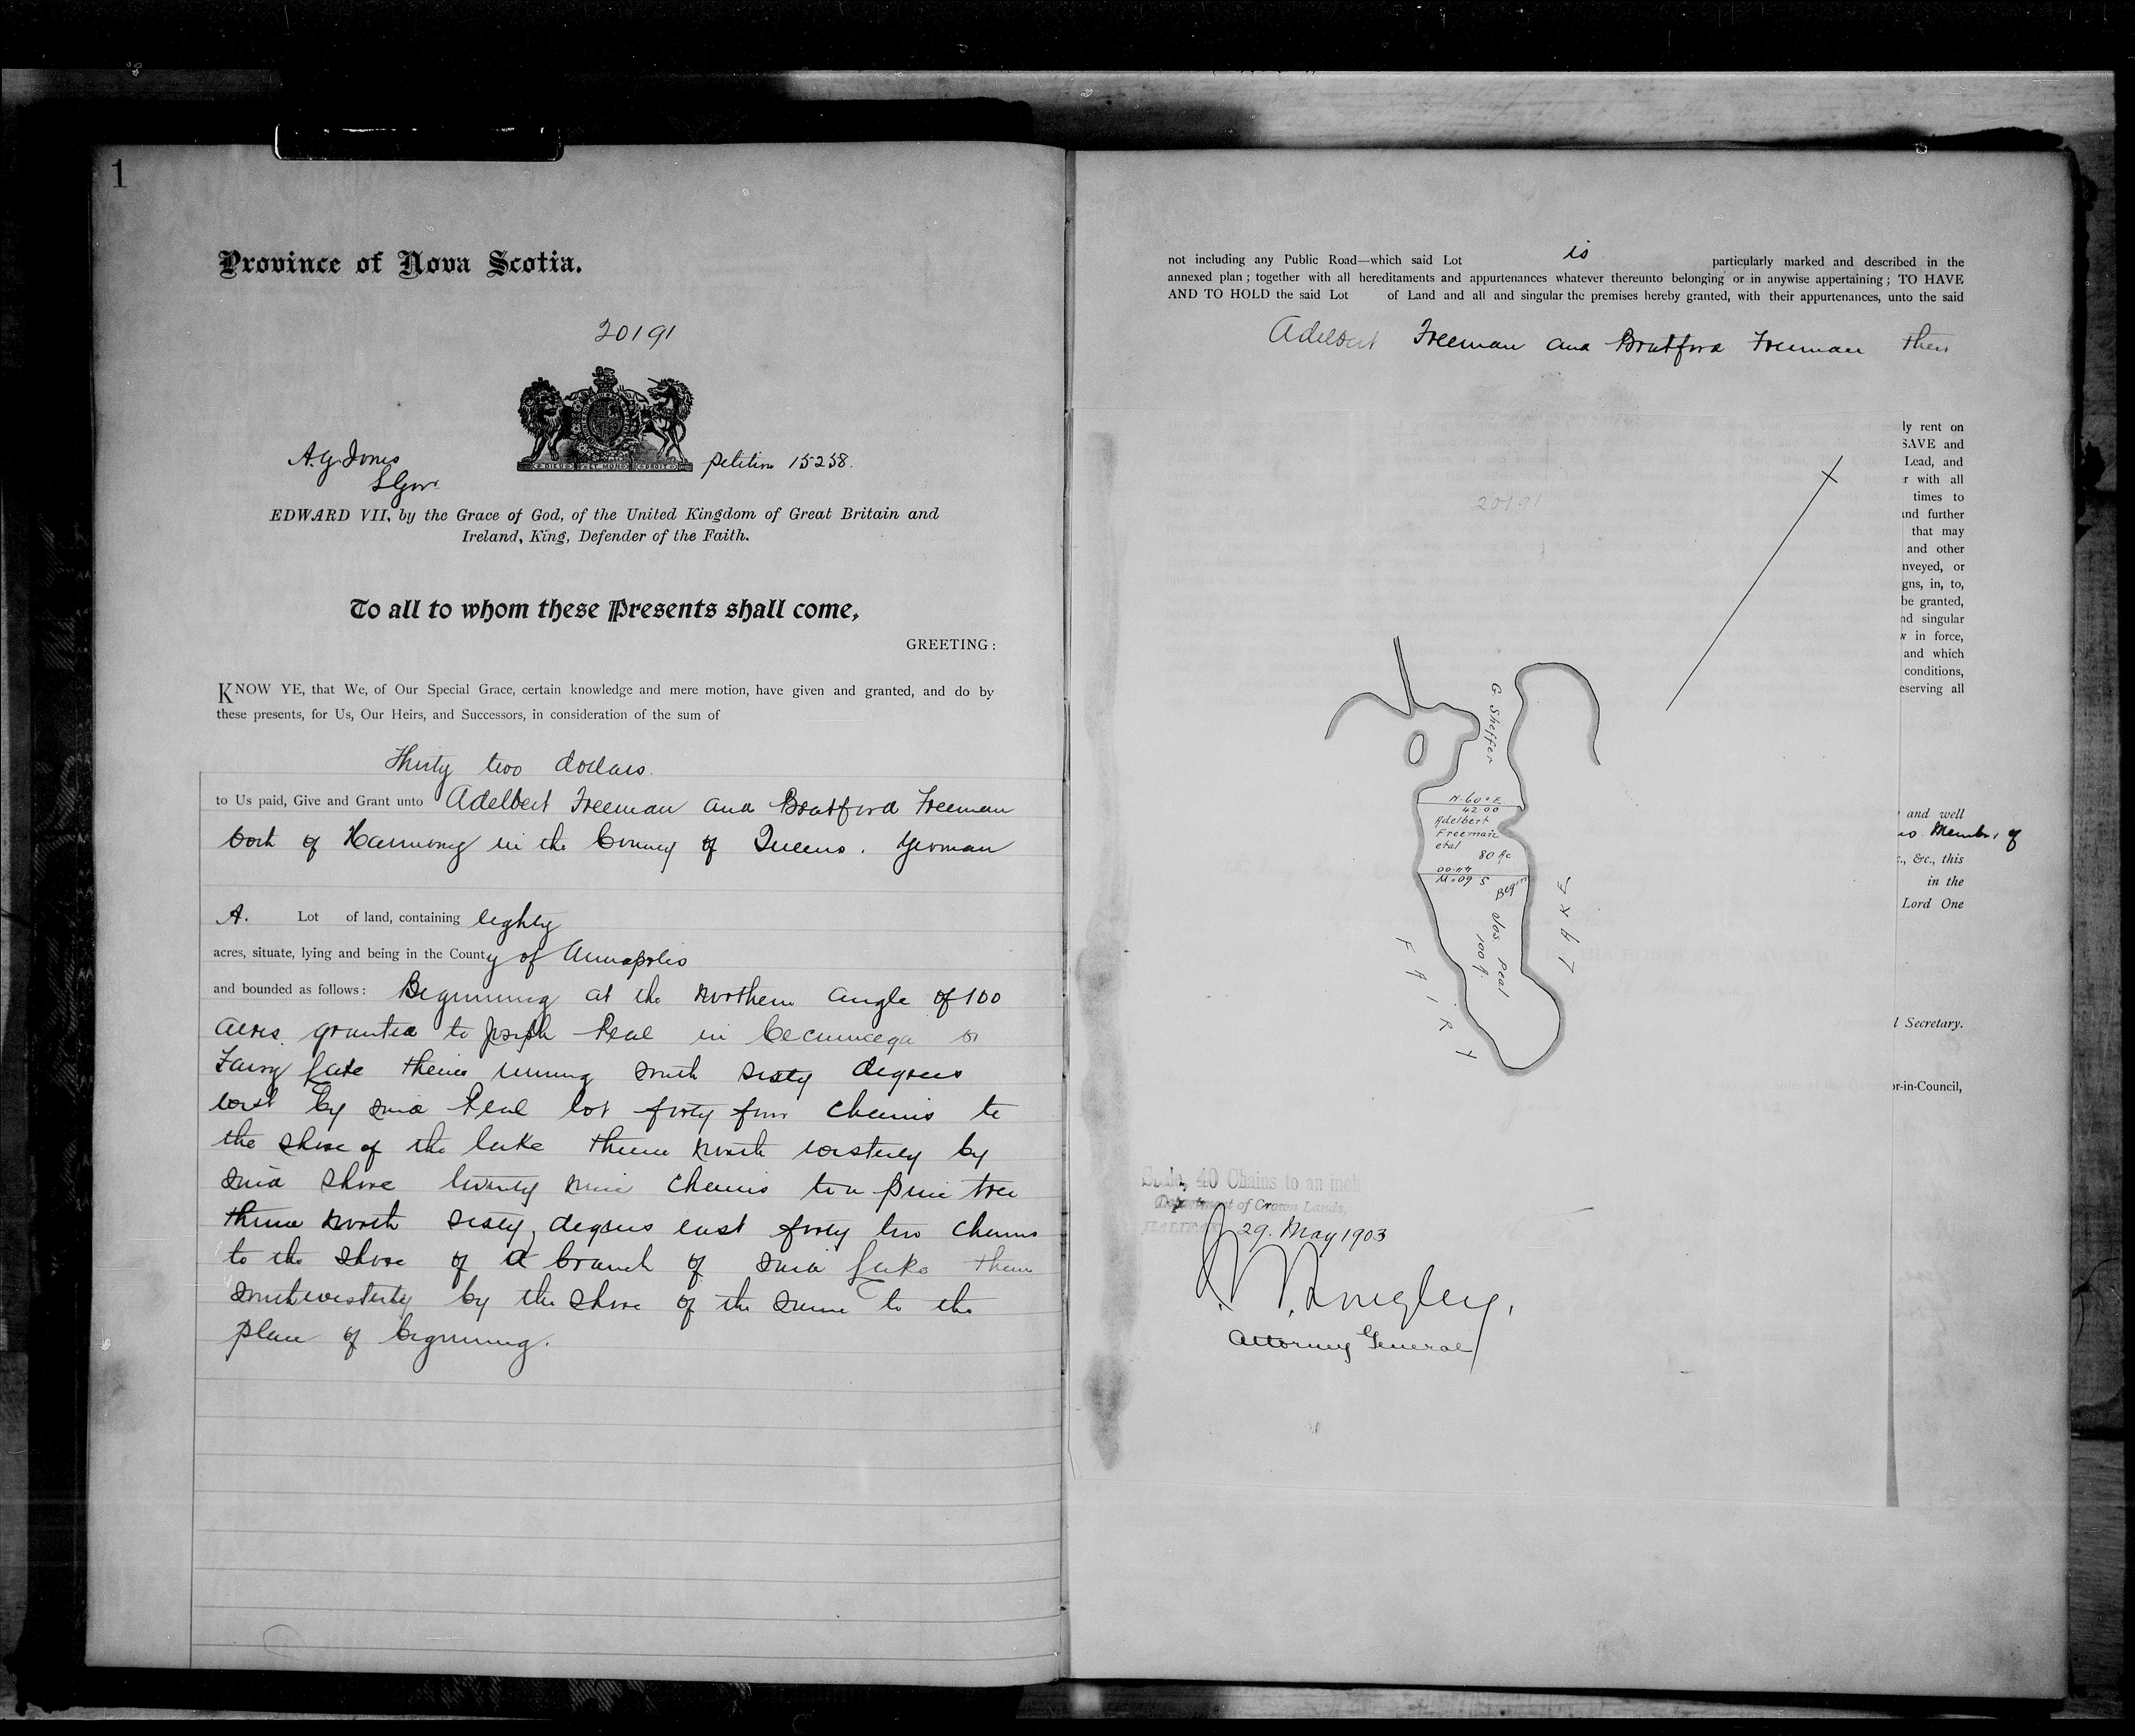 1
Province of Nova Scotia.
20191
A. G. Jones
L Gov
DIEU ET MON DROIT
petition 15238.
EDWARD VII, by the Grace of God, of the United Kingdom of Great Britain and
Ireland, King, Defender of the Faith.
To all to whom these Presents shall come,
GREETING:
KNOW YE, that We, of Our Special Grace, certain knowledge and mere motion, have given and granted, and do by
these presents, for Us, Our Heirs, and Successors, in consideration of the sum of
Thirty two dollars.
to Us paid, Give and Grant unto Adelbert Freeman and Bratford Freeman
both of Harmony in the County of Queens. Yeoman
A. Lot of land, containing eighty
acres, situate, lying and being in the County of Annapolis
and bounded as follows: Beginning at the Northern angle of 100
acres granted to Joseph Peal in or
Fairy Lake thence running south sixty degrees
west by said Peal lot forty four chains to
the shore of the lake thence north westerly by
said shore twenty nine chains to a pine tree
thence north sixty degrees east forty two chains
to the shore of a branch of said Lake thence
southwesterly by the shore of the same to the
place of beginning.
not including any Public Road—which said Lot is particularly marked and described in the
annexed plan; together with all hereditaments and appurtenances whatever thereunto belonging or in anywise appertaining; TO HAVE
AND TO HOLD the said Lot of Land and all and singular the premises hereby granted, with their appurtenances, unto the said
Adelbert Freeman and Bratford Freeman their
ly rent on
SAVE and
Lead, and
r with all
times to
and further
that may
and other
nveyed, or
gns, in, to,
be granted,
nd singular
w in force,
and which
conditions,
eserving all
and well
Membr, of
&c., this
in the
Lord One
l Secretary.
or-in-Council,
20191
G. Sheffer
N. 60° E
42.00
Adelbert
Freeman
etal
80 Ac
44.00
S 60° W
Begin
Jos Peal
100 A.
FAIRY
LAKE
Scale, 40 Chains to an inch
Department of Crown Lands,
HALIFAX 29. May 1903
J. W. Longley.
Attorney General